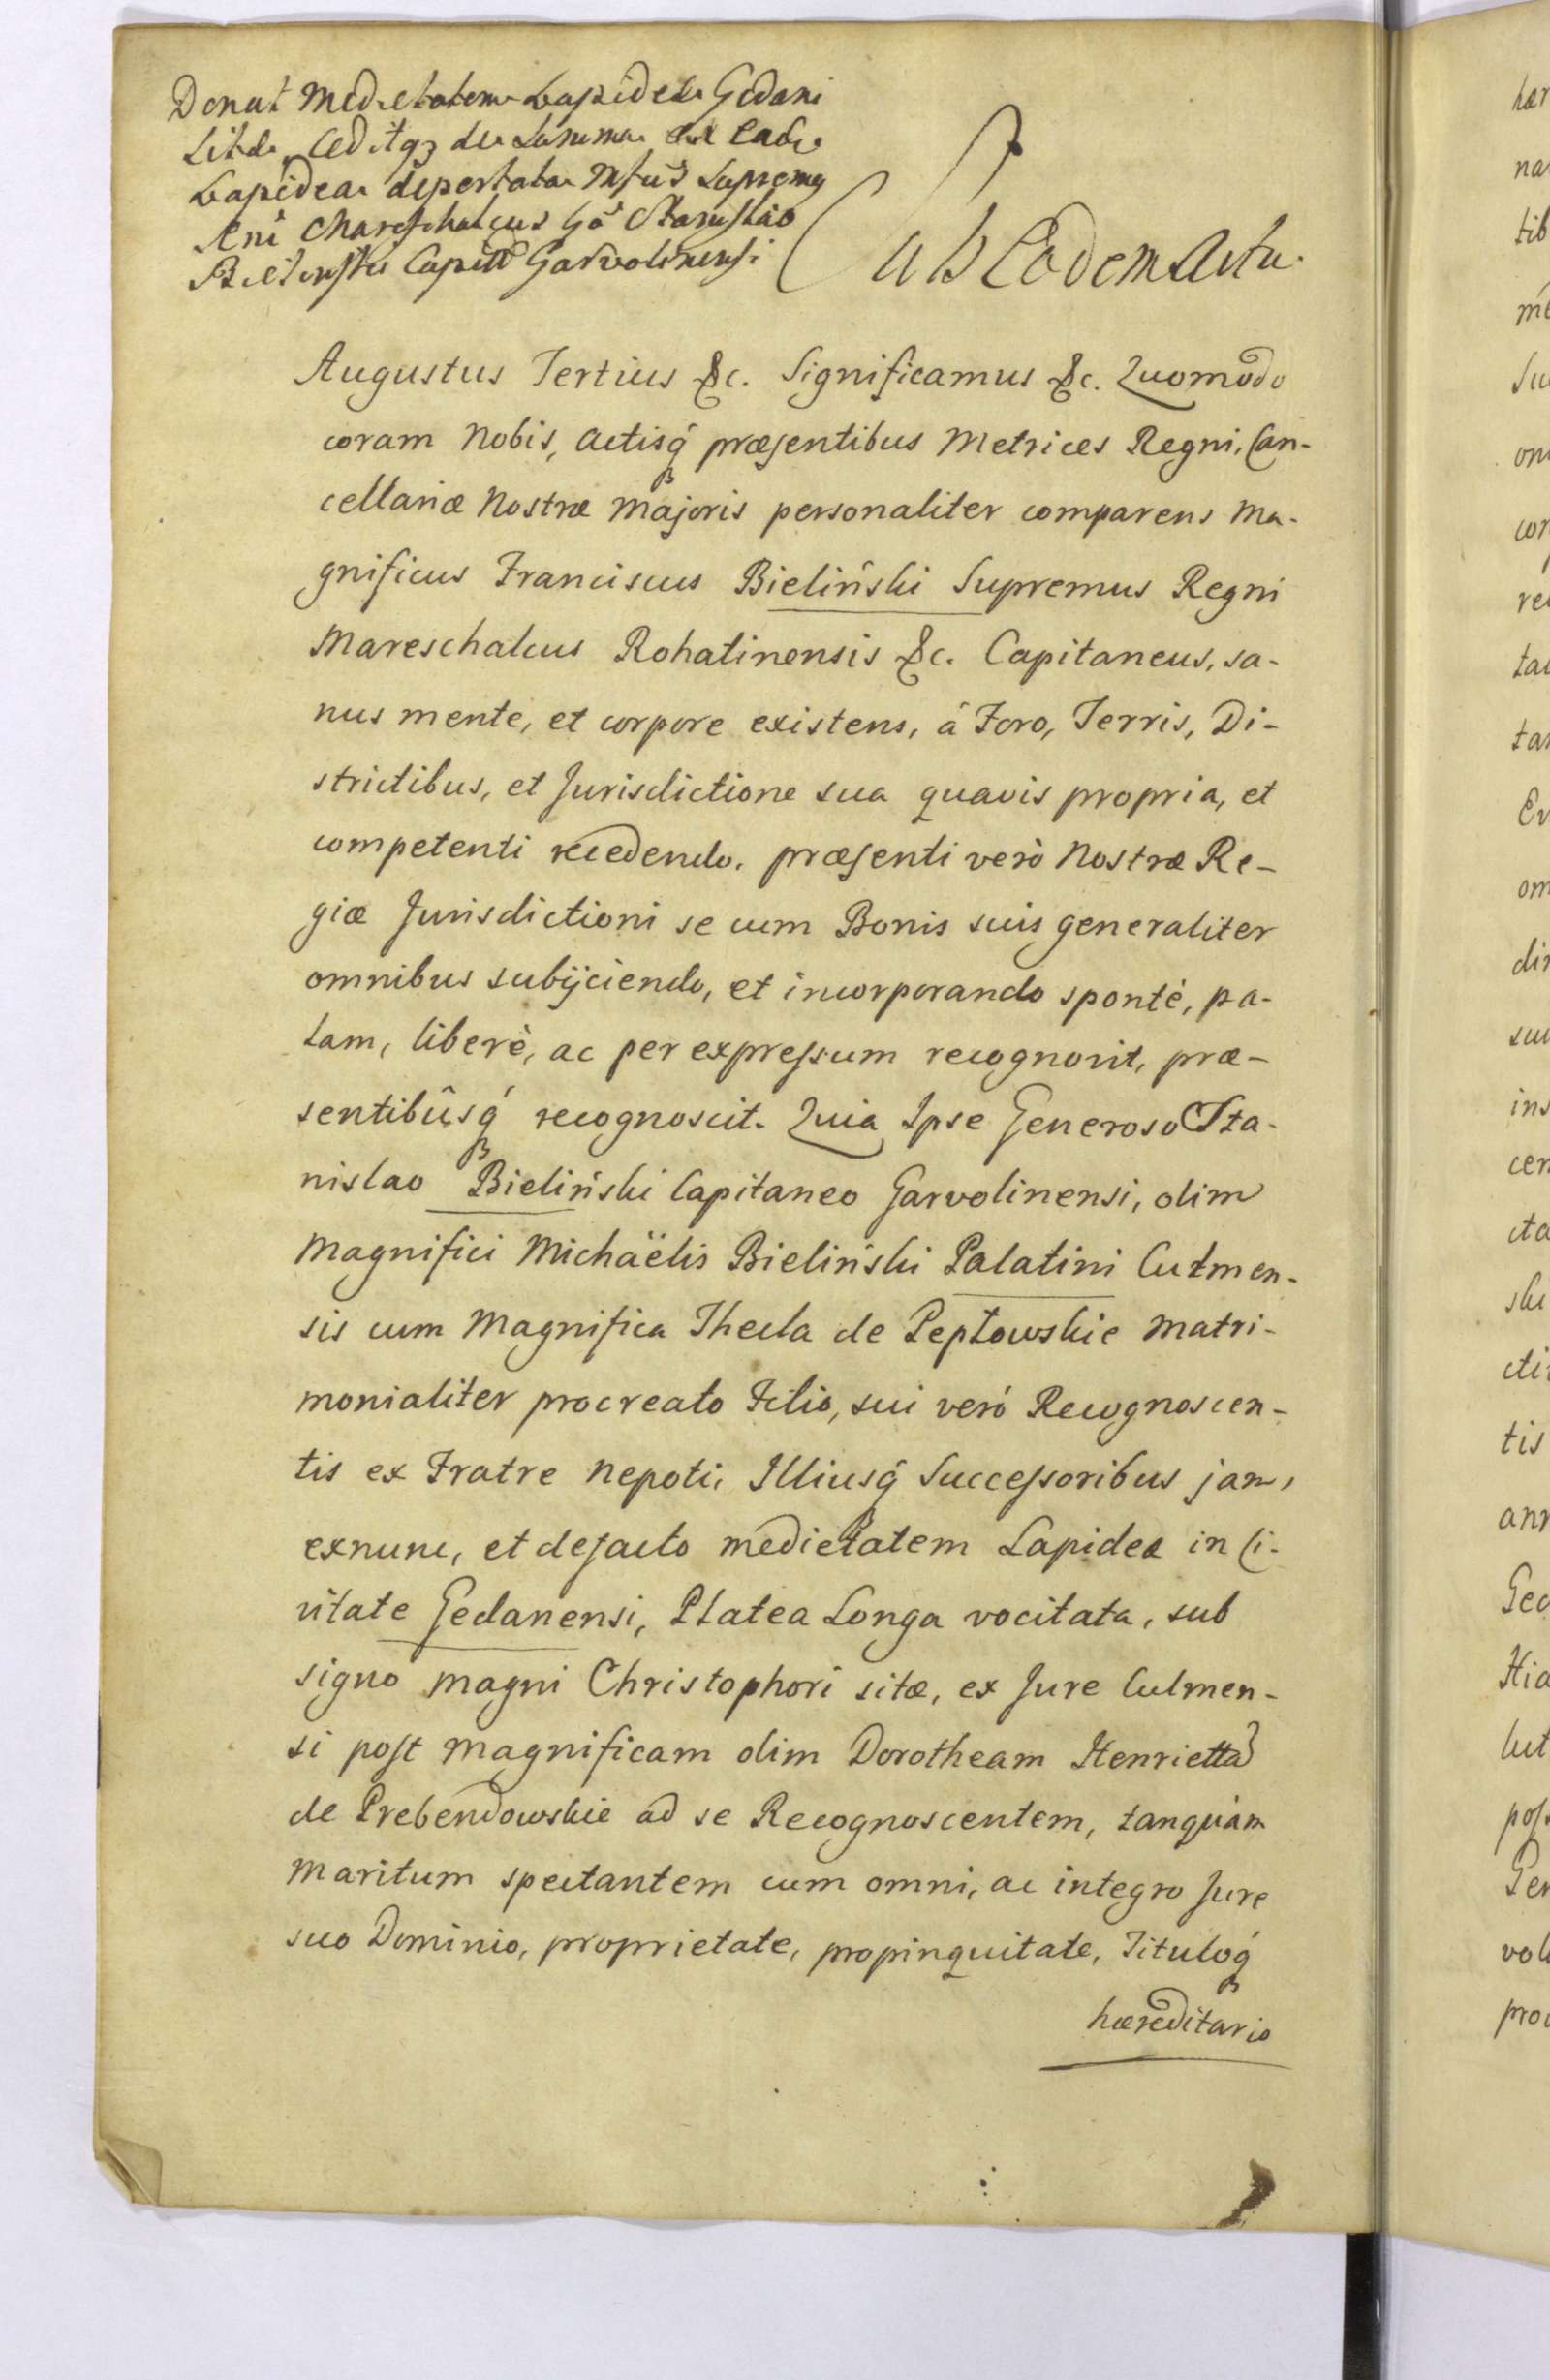 Donat Medietatem Lapideæ Gedani
Sitæ, Ceditq3 de Summa ex eadem
Lapidea deportata Mfus Supremus
Rni Mareschalcus Gō Stanislao
Bielinski Capitō Garvolinensi
Sub Eodem Actu.
Augustus Tertius &c. Significamus &c. Quomodo
coram Nobis, Actisq́ præsentibus Metrices Regni, Can-
cellariæ Nostræ Majoris personaliter comparens Ma-
gnificus Franciscus Bieliński Supremus Regni
Mareschalcus Rohatinensis &c. Capitaneus, sa-
nus mente, et corpore existens, â Foro, Terris, Di-
strictibus, et Jurisdictione sua quavis propria, et
competenti recedendo. præsenti verò Nostræ Re-
giæ Jurisdictioni se cum Bonis suis generaliter
omnibus subijciendo, et incorporando spontè, pa-
lam, liberè, ac per expressum recognovit, præ-
sentibûsq́ recognoscit. Quia Ipse Generoso Sta-
nislao Bieliński Capitaneo Garvolinensi, olim
Magnifici Michaëlis Bieliński Palatini Culmen-
sis cum Magnifica Thecla de Pepłowskie Matri-
monialiter procreato Filio, sui verò Recognoscen-
tis ex Fratre Nepoti, Illiusq́ Successoribus jam,
exnunc, et defacto medietatem Lapideæ in Ci-
vitate Gedanensi, Platea Longa vocitata, sub
signo Magni Christophori sitæ, ex Jure Culmen-
si post Magnificam olim Dorotheam Henriettã
de Prebendowskie ad se Recognoscentem, tanquàm
Maritum spectantem cum omni, ac integro Jure
suo Dominio, proprietate, propinquitate, Tituloq́
hæreditario